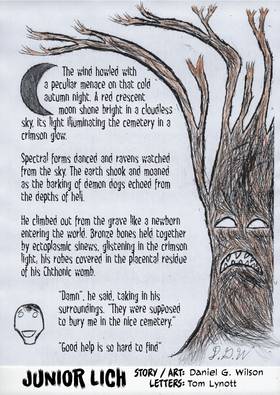 The wind howled with
a peculiar menace on that cold
autumn night. A red crescent
moon shone bright in a cloudless
sky, its light illuminating the cemetery in a
crimson glow.
Spectral forms danced and ravens watched
from the sky. The earth shook and moaned
as the barking of demon dogs echoed from
the depths of hell.
He climbed out from the grave like a newborn
entering the world. Bronze bones held together
by ectoplasmic sinews, glistening in the crimson
light, his robes covered in the placental residue
of his Chthonic womb.
"Damn", he said, taking in his
surroundings. "They were supposed
to bury me in the nice cemetery."
"Good help is so hard to find"
J.D.W
JUNIOR LICH
STORY / ART: Daniel G. Wilson
LETTERS: Tom Lynott